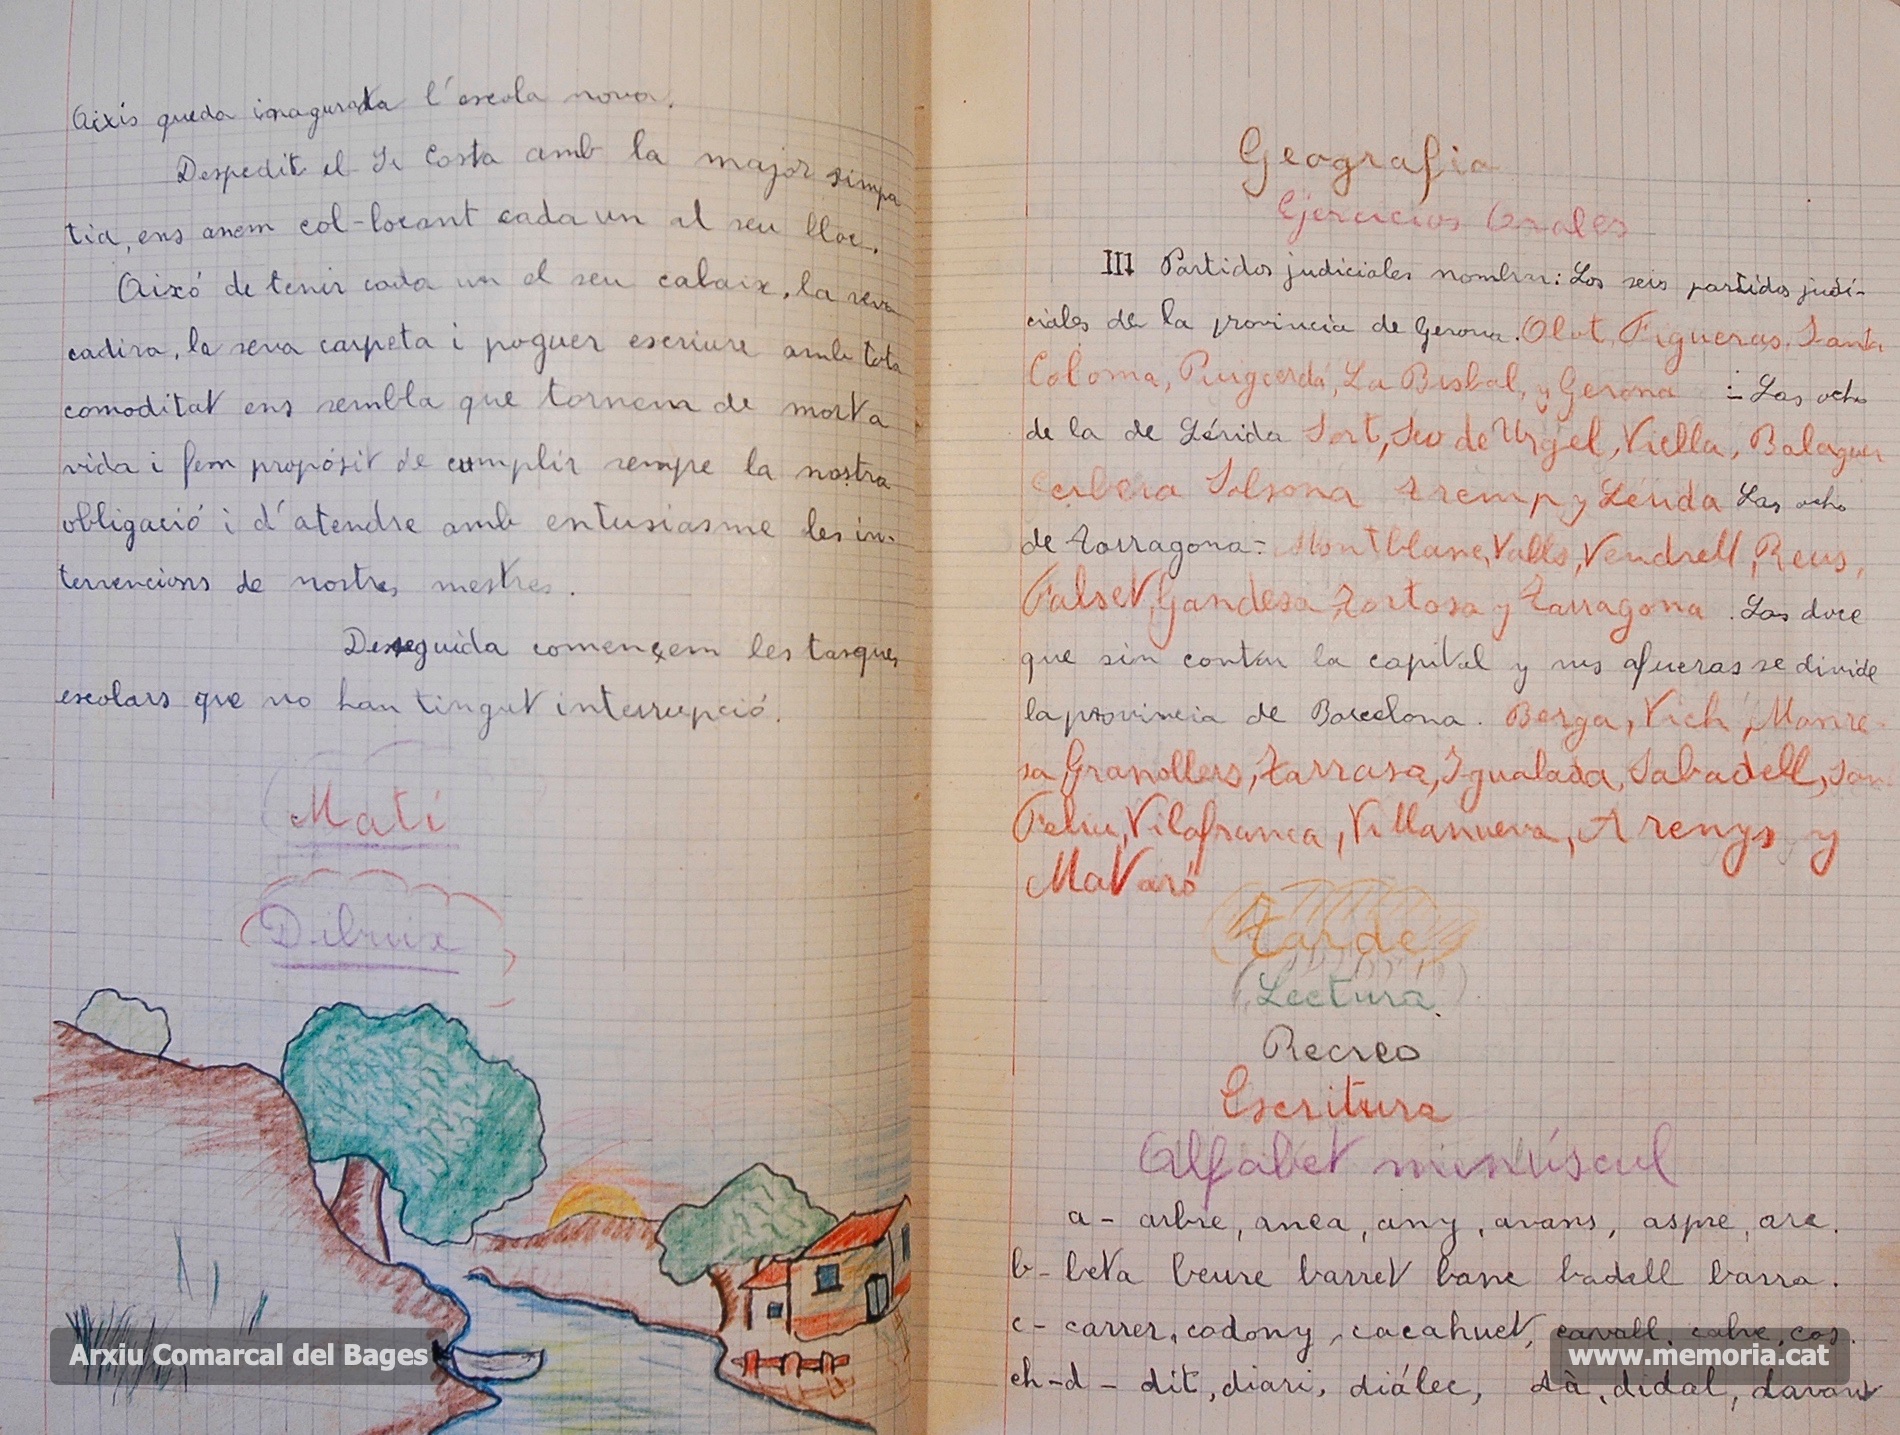 Aixís queda inagurada l'escola nova.
Despedit el Sr Costa amb la major simpa
tia, ens anem col-locant cada un al seu lloc.
Aixó de tenir cada un el seu calaix, la seva
cadira, la seva carpeta i poguer escriure amb tota
comoditat ens sembla que tornem de morta
vida i fem propósit de cumplir sempe la nostra
obligació i d'atendre amb entusiasme les in-
tervencions de nostres mestres.
Desseguida començem les tasques
escolars que no han tingut interrupció.
Matí
Dibuix
Geografia
Ejercicios Orales
III Partidos judiciales nombrar: Los seis partidos judi-
ciales de la provincia de Gerona. Olot, Figueras, Santa
Coloma, Puigcerdá, La Bisbal, y Gerona := Los ocho
de la de Lérida Sort, Seo de Urgel, Viella, Balaguer
Cerbera Solsona Tremp y Lérida Las ocho
de Tarragona= Montblanc, Valls, Vendrell, Reus,
Falset, Gandesa, Tortosa y Tarragona. Los doce
que sin contar la capital y sus afueras se divide
la provincia de Barcelona. Berga, Vich, Manre-
sa, Granollers, Tarrasa, Igualada, Sabadell, San
Feliu, Vilafranca, Villanueva, Arenys y
Mataró
Tarde
Lectura.
Recreo
Escritura
Alfabet minúscul
a- arbre, anca, any, avans, aspre, arc.
b- beta beure barret banc badell barra.
c- carrer, codony, cacahuet, cavall, calze, cos.
ch-d- dit, diari, diálec, dà, didal, davant
Arxiu Comarcal del Bages
www.memoria.cat